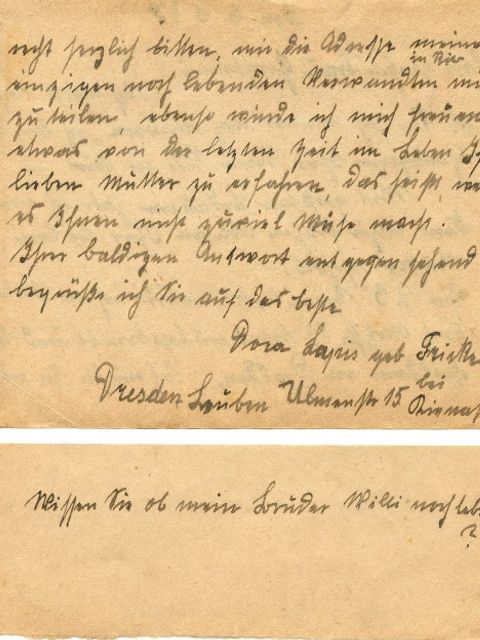 recht herzlich bitten, mir die Adresse meine
in
einzigen noch lebenden Verwandten mi
zu teilen, ebenso würde ich mich freuen
etwas von der letzten Zeit im Leben Ih
lieben Mutter zu erfahren, das heißt, we
es Ihnen nicht zuviel Mühe macht.
Ihrer baldigen Antwort entgegen sehend
begrüße ich Sie auf das beste
Dora Lapis geb Fricke
Dresden Leuben Ulmenstr 15 bei
Wissen Sie ob mein Bruder Willi noch leb
?